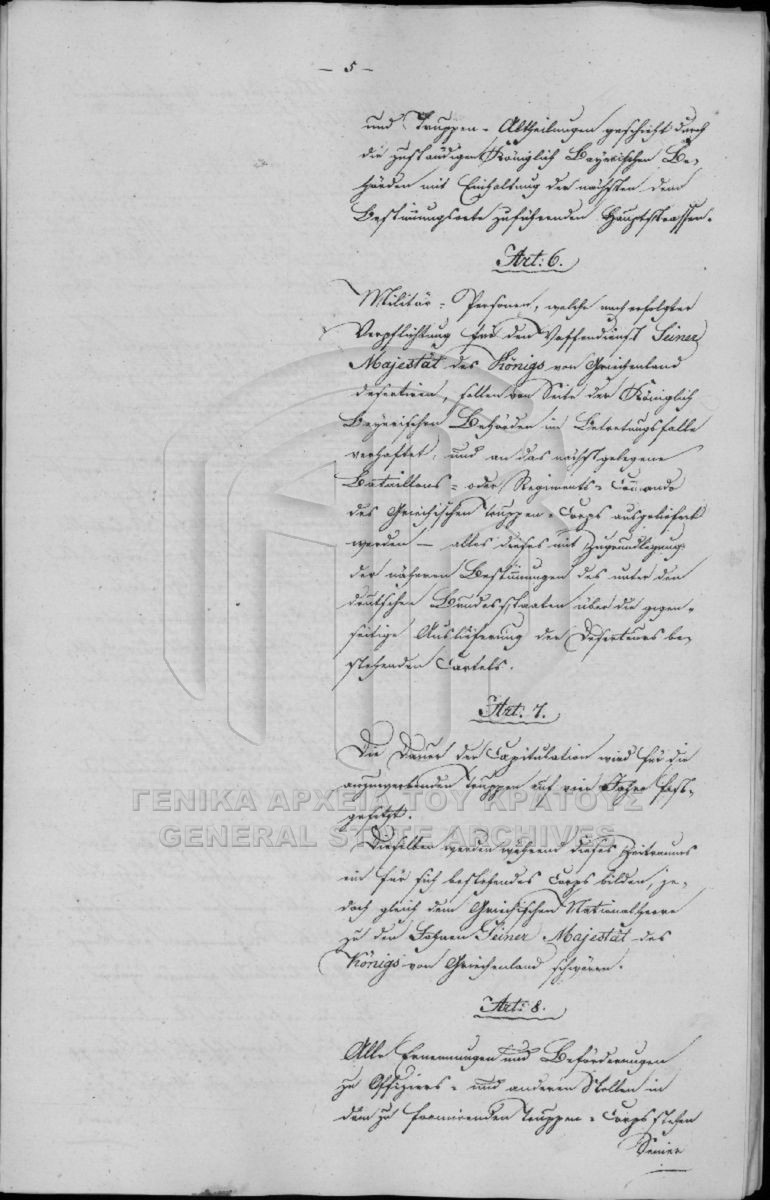 – 5 –
und Truppen-Abtheilungen geschieht durch
die zuständigen Königlich Bayerischen Be-
hörden mit Einhaltung der nächsten dem
Bestim̄ungsorte zuführenden Hauptstrassen.
Art: 6.
Militär-Personen, welche nach erfolgter
Verpflichtung für den Waffendienst Seiner
Majestät des Königs von Griechenland
desertiren, sollen von Seite der Königlich
Bayerischen Behörden im Betretungsfalle
verhaftet, und an das nächstgelegene
Bataillons- oder Regiments-Com̄ando
des Griechischen Truppen-Corps ausgeliefert
werden – alles dieses mit Zugrundlegung
der näheren Bestim̄ungen des unter den
deutschen Bundesstaaten über die gegen-
seitige Auslieferung der Deserteurs be-
stehenden Cartels.
Art: 7.
Die Dauer der Capitulation wird für die
anzuwerbenden Truppen auf vier Jahre fest-
gesetzt.
Dieselben werden während dieses Zeitraums
ein für sich bestehendes Corps bilden, je-
doch gleich dem Griechischen Nationalheere
zu den Fahnen Seiner Majestät des
Königs von Griechenland schwören.
Art: 8.
Alle Ernennungen und Beförderungen
zu Offiziers- und anderen Stellen in
dem zu formirenden Truppen-Corps stehen
Seiner
ΓΕΝΙΚΑ ΑΡΧΕΙΑ ΤΟΥ ΚΡΑΤΟΥΣ
GENERAL STATE ARCHIVES